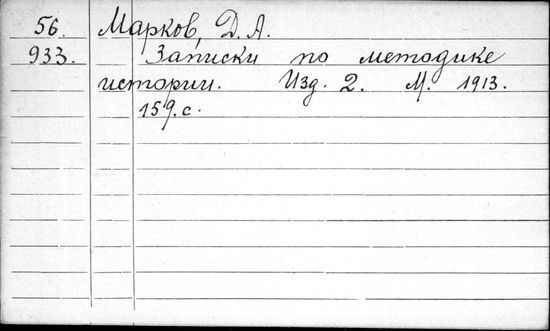 56. Марков, Д. А.
933. Записки по методике
истории. Изд. 2. М. 1913.
159. с.